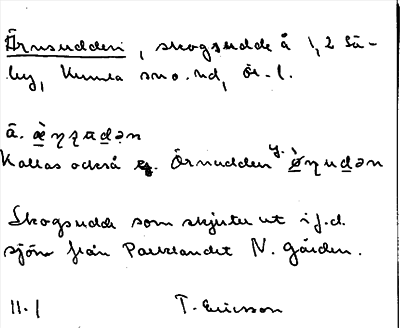 Örnsudden, skogsudde å 1,2 Sä-
by, Kumla sn o. hd, Ör. l.
a. 
Kallas också Örnudden
Skogsudde som skjuter ut i f.d.
sjön från Parklandet N. gården.
11.1 T. Ericsson